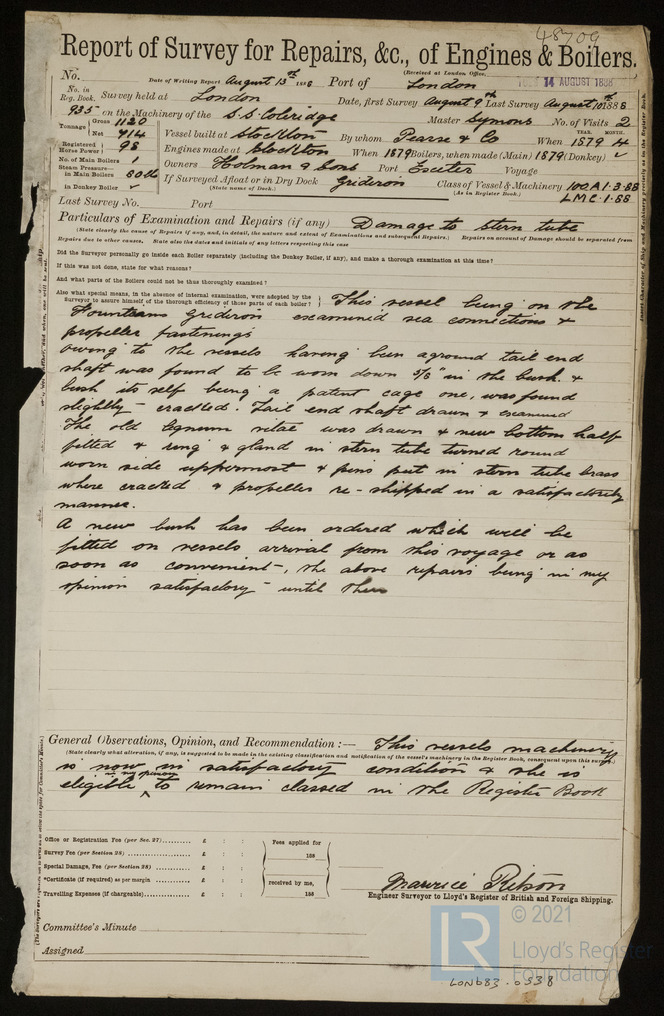 48709
Report of Survey for Repairs, &c., of Engines & Boilers.
(Received at London Office,
14 AUGUST 1888
No. Date of Writing Report August 13th 1888 Port of London
No. in Reg. Book. Survey held at London Date, first Survey August 9th Last Survey August 10th 1888
935 on the Machinery of the S.S. Coleridge Master Symons No. of Visits 2
Tonnage Gross 1120 Net 714
Vessel built at Stockton By whom Pearse & Co When YEAR. 1879 MONTH. 4
Registered Horse Power 98
Engines made at Stockton When 1879 Boilers, when made (Main) 1879 (Donkey) ✓
No. of Main Boilers 1
Owners Holman & Sons Port Exeter Voyage
Steam Pressure in Main Boilers 80 lb
in Donkey Boiler ✓
If Surveyed Afloat or in Dry Dock Gridiron Class of Vessel & Machinery 100.A.1.3.88
(State name of Dock.) (As in Register Book.) LMC.1.88
Last Survey No. Port
Particulars of Examination and Repairs (if any) Damage to stern tube
(State clearly the cause of Repairs if any, and, in detail, the nature and extent of Examinations and subsequent Repairs.) Repairs on account of Damage should be separated from
Repairs due to other causes. State also the dates and initials of any letters respecting this case
Did the Surveyor personally go inside each Boiler separately (including the Donkey Boiler, if any), and make a thorough examination at this time?
If this was not done, state for what reasons?
And what parts of the Boilers could not be thoroughly examined?
Also what special means, in the absence of internal examination, were adopted by the
Surveyor to assure himself of the thorough efficiency of those parts of each boiler? This vessel being on the
Gridiron examined sea connections &
propeller fastenings
owing to the vessels having been aground tail end
shaft was found to be worn down 5/8" in the bush. &
bush its self being a patent cage one, was found
slightly cracked. Tail end shaft drawn & examined
The old lignum vitae was drawn & new bottom half
fitted & ring & gland in stern tube turned round
worn side uppermost & pins put in stern tube brass
where cracked & propeller re-shipped in a satisfactorily
manner.
A new bush has been ordered which will be
fitted on vessels arrival from this voyage or as
soon as convenient, the above repairs being in my
opinion satisfactory until then
General Observations, Opinion, and Recommendation:— This vessels machinery
(State clearly what alteration, if any, is suggested to be made in the existing classification and notification of the vessel's machinery in the Register Book, consequent upon this survey.)
is now in satisfactory condition & she is
eligible in my opinion to remain classed in the Register Book
Office or Registration Fee (per Sec. 27) £ : :
Survey Fee (per Section 28) £ : :
Special Damage, Fee (per Section 28) £ : :
*Certificate (if required) as per margin £ : :
Travelling Expenses (if chargeable) £ : :
Fees applied for
188
received by me,
188
Maurice Ribson
Engineer Surveyor to Lloyd's Register of British and Foreign Shipping.
Committee's Minute
Assigned
LR
© 2021
Lloyd's Register
Foundation
LON683-0538